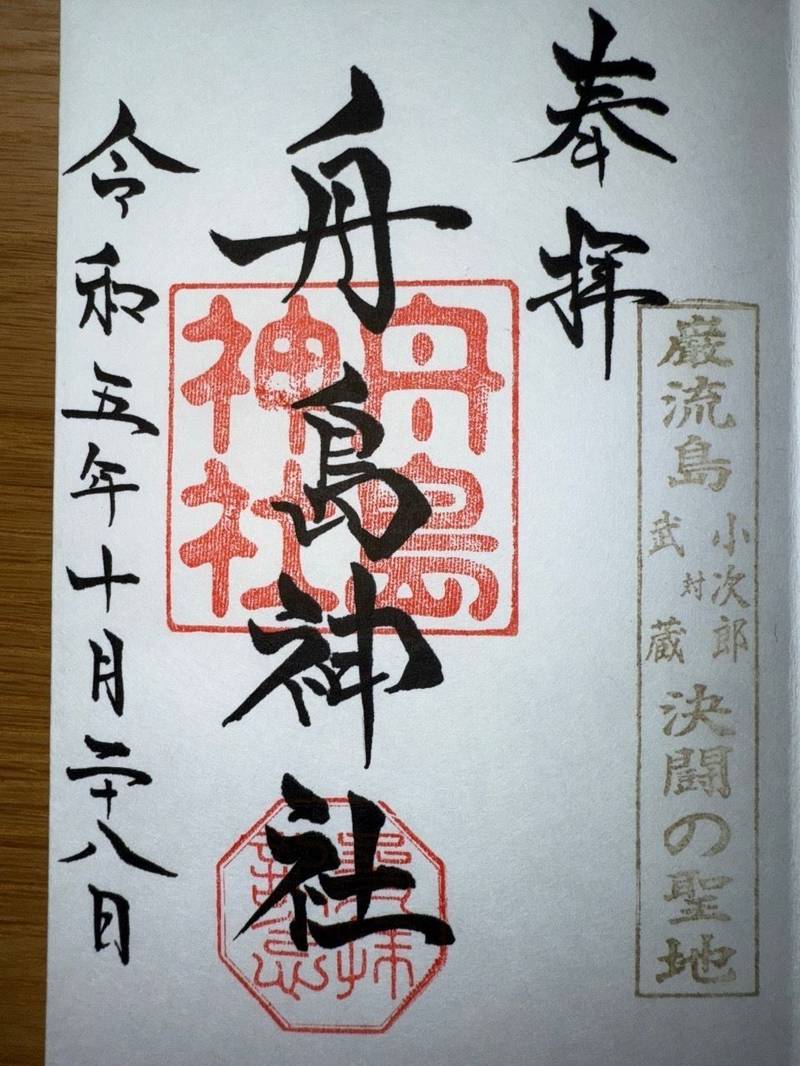 巌流島
小次郎
対
武蔵
決闘の聖地
奉拝
舟島神社
舟島
神社
令和五年十月二十八日